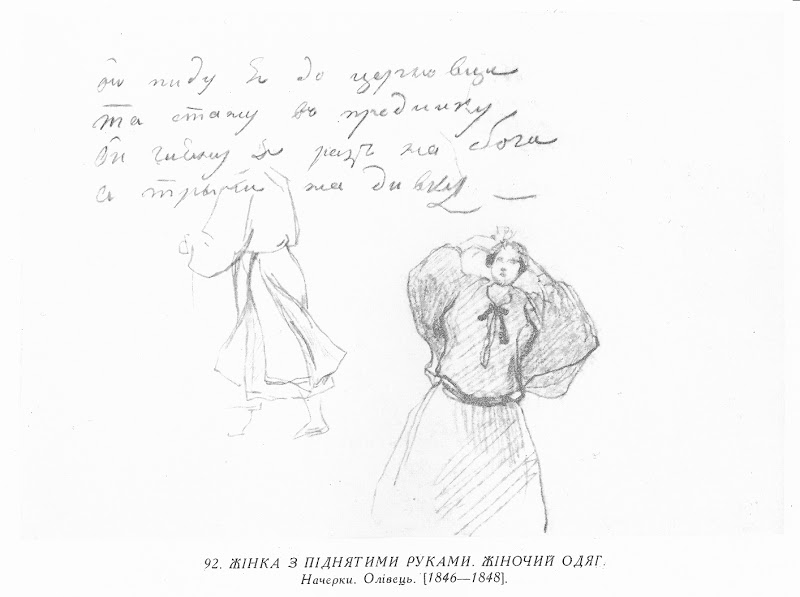 ой пиду я до церковци
та стану въ предънку
ой гляну я разъ на бога
а трычи на дивку —
92. ЖІНКА З ПІДНЯТИМИ РУКАМИ. ЖІНОЧИЙ ОДЯГ.
Начерки. Олівець. [1846—1848].